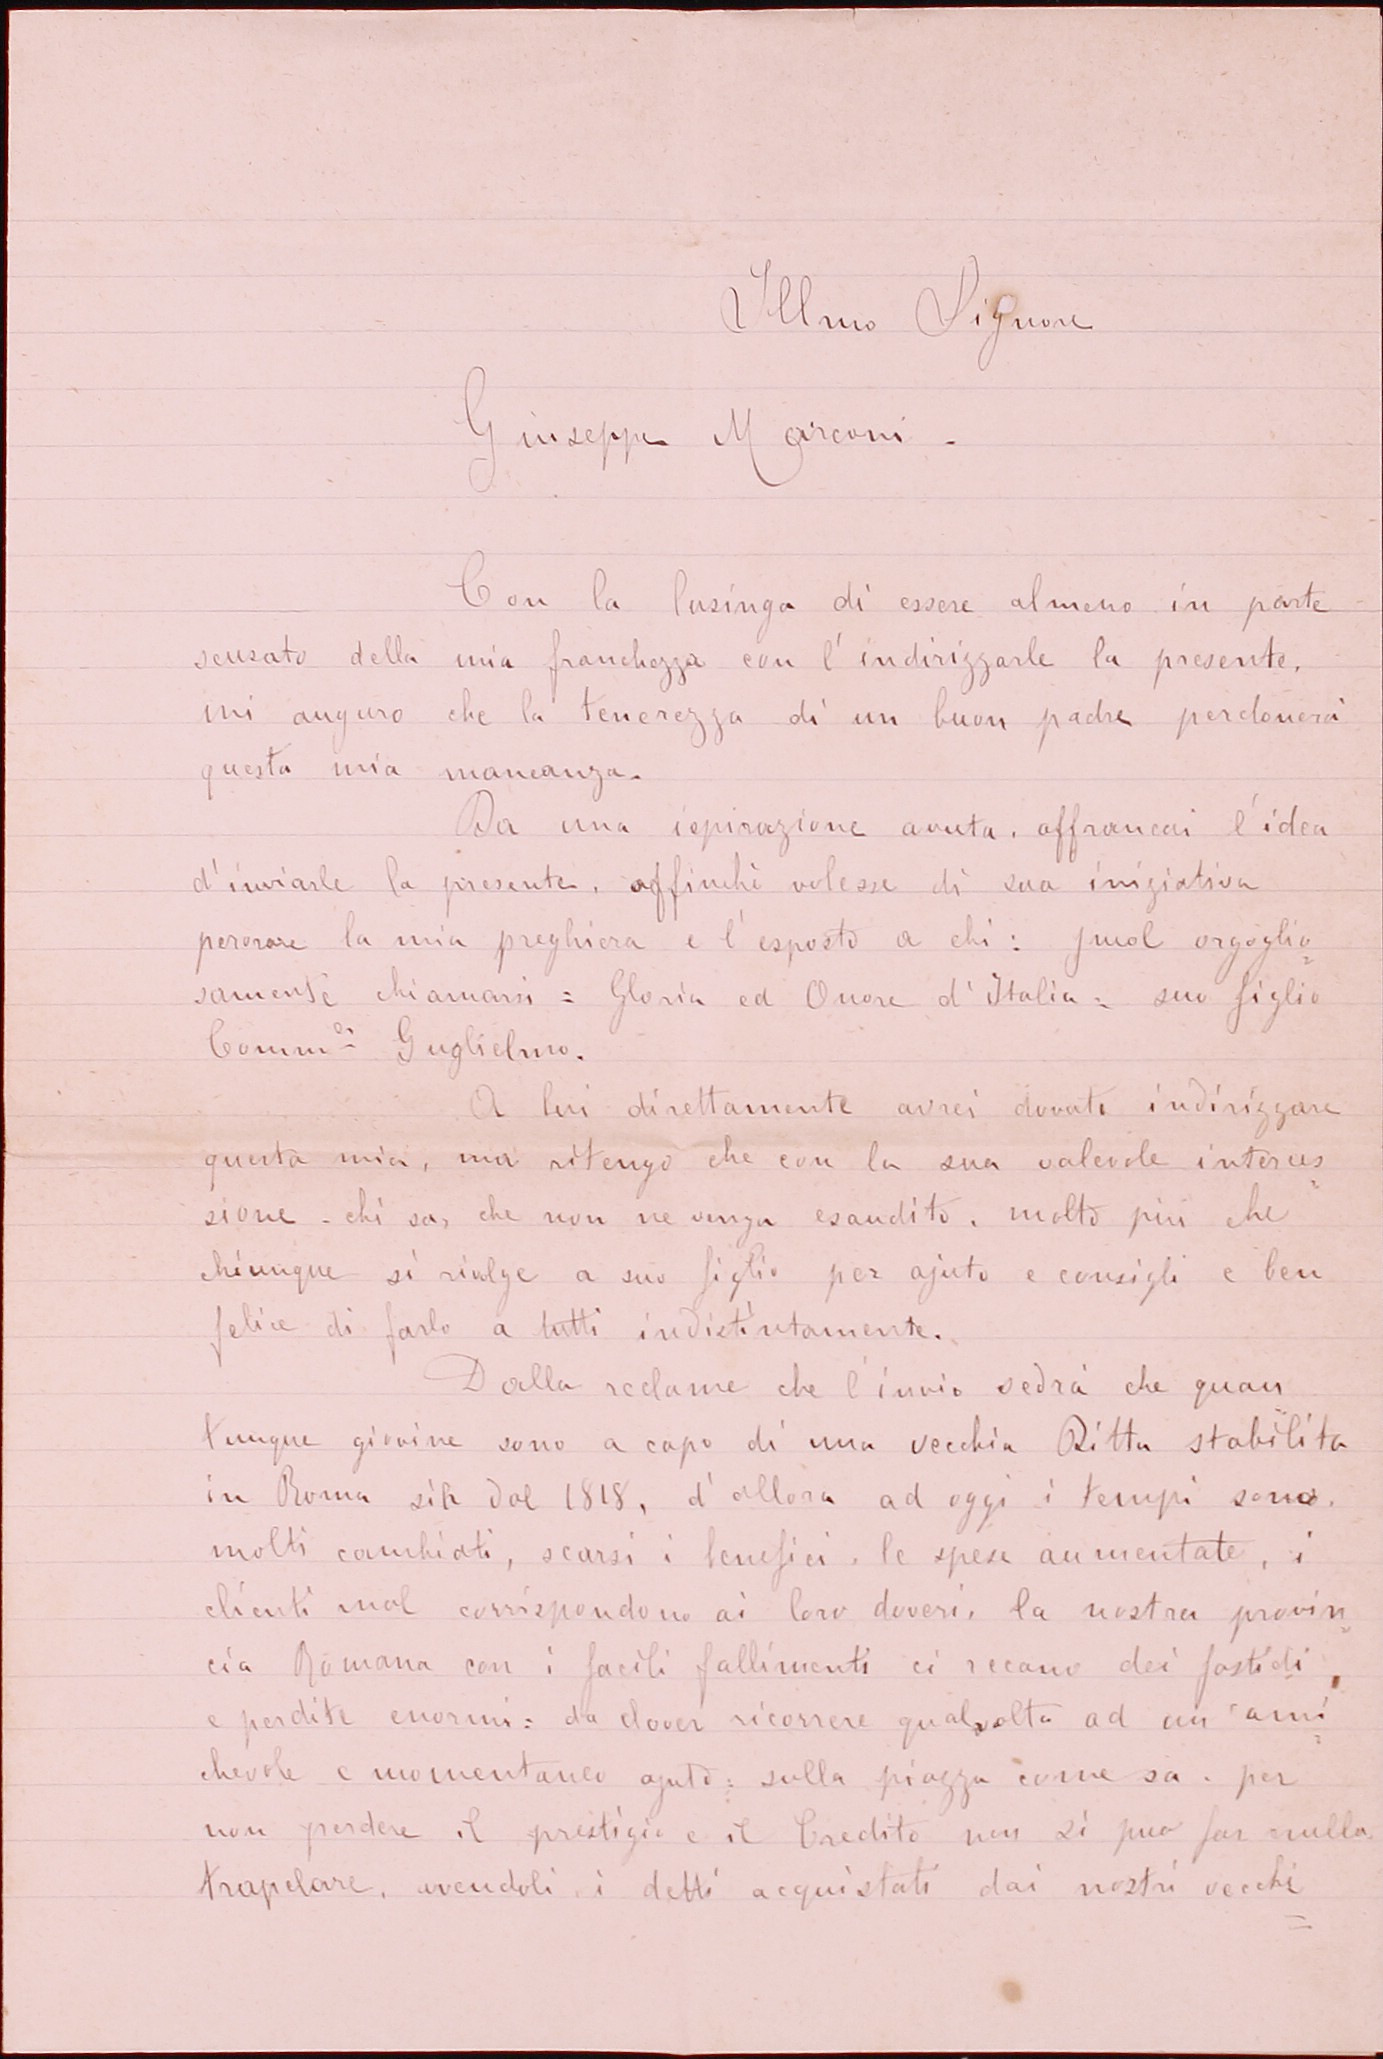 Illmo Signore
Giuseppe Marconi -
Con la lusinga di essere almeno in parte
scusato della mia franchezza con l'indirizzarle la presente,
mi auguro che la tenerezza di un buon padre perdonerà
questa mia mancanza.
Da una ispirazione avuta, affrancai l'idea
d'inviarle la presente, affinchè volesse di sua iniziativa
perorare la mia preghiera e l'esposto a chi: puol orgoglio=
samente chiamarsi = Gloria ed Onore d'Italia = suo figlio
Comm. Guglielmo.
A lui direttamente avrei dovuto indirizzare
questa mia, ma ritengo che con la sua valevole interces=
sione - chi sa, che non ne venga esaudito, molto più che
chiunque si rivolge a suo figlio per ajuto e consigli e ben
felice di farlo a tutti indistintamente.
Dalla reclame che l'invio vedrà che quan=
tunque giovine sono a capo di una vecchia Ditta stabilita
in Roma sin dal 1818, d'allora ad oggi i tempi sono
molti cambiati, scarsi i benefici, le spese aumentate, i
clienti mal corrispondono ai loro doveri, la nostra provin=
cia Romana con i facili fallimenti ci recano dei fastidi,
e perdite enormi: da dover ricorrere qualvolta ad un'ami=
chevole e momentaneo ajuto: sulla piazza come sa, per
non perdere il prestigio e il Credito non si puo far nulla
trapelare, avendoli i detti acquistati dai nostri vecchi
=